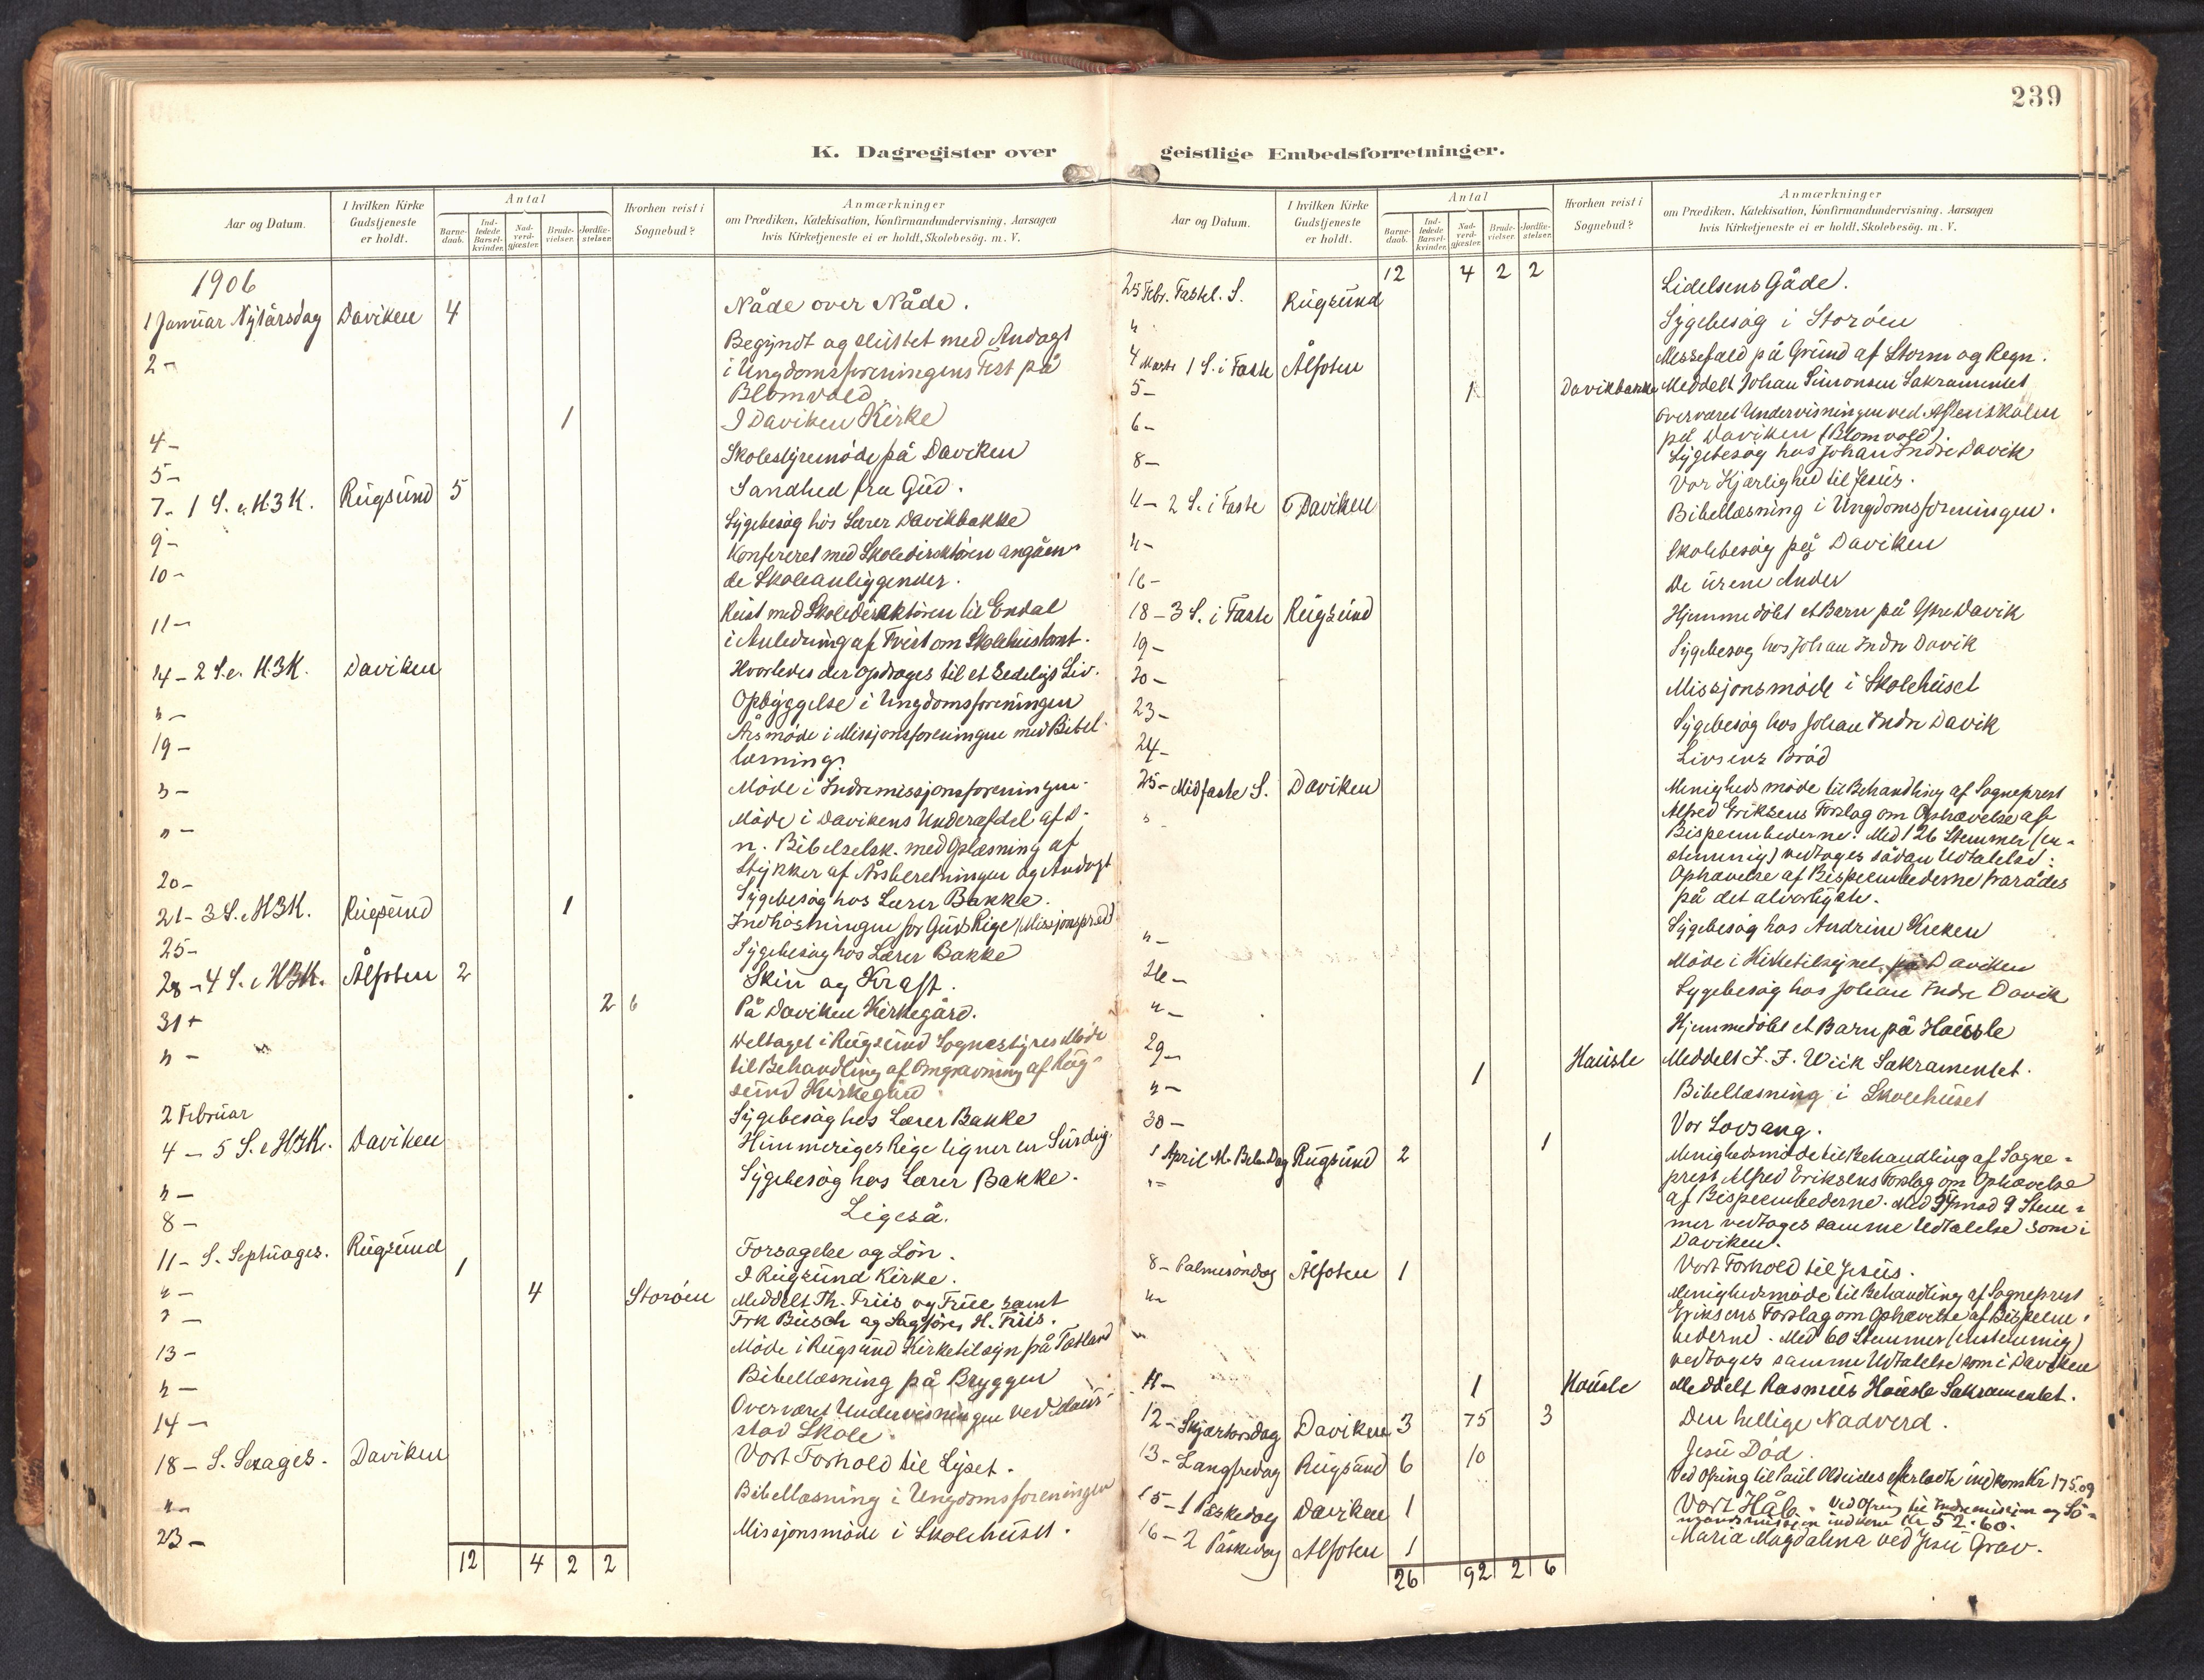 239
K. Dagregister over geistlige Embedsforretninger.
Aar og Datum.
I hvilken Kirke Gudstjeneste er holdt.
Antal
Barne-daab.
Ind-ledede Barsel-kvinder.
Nad-verd-gjæster.
Brude-vielser.
Jordfæ-stelser.
Hvorhen reist i Sognebud?
Anmærkninger
om Prædiken, Katekisation, Konfirmandundervisning, Aarsagen
hvis Kirketjeneste ei er holdt, Skolebesög. m. V.
1906
1 Januar Nytårsdag Daviken 4 Nåde over Nåde.
2 - Begyndt og sluttet med Andagt
i Ungdomsforeningens Fest på
Blomvold.
4 - 1 I Daviken Kirke
5 - Skolestyremöde på Daviken
7 - 1 S. e. H.3K. Rugsund 5 Sandhed fra Gud.
9 - Sygebesög hos Lærer Davikbakke
10 - Konfereret med Skoledirektören angåen-
de Skoleanliggender.
11 - Reist med Skoledirektören til Endal
i Anledning af Tvist om Skolehustomt.
14 - 2 S. e. H.3K. Daviken Hvorledes der opdrages til et sedeligt Liv.
" - Opbyggelse i Ungdomsforeningen
19 - Årsmöde i Missjonsforeningen med Bibel-
læsning.
" - Möde i Indremissjonsforeningen.
" - Möde i Davikens Underafdel af D.
n. Bibelselsk. med Oplæsning af
Stykker af Årsberetningen og Andagt
20 - Sygebesög hos Lærer Bakke.
21 - 3 S. e. H3K. Rugsund 1 Indhöstningen for Guds Rige (Missjonspræd)
25 - Sygebesög hos Lærer Bakke
28 - 4 S. e. H3K. Ålfoten 2 Skin og Kraft.
31 - 2 6 På Daviken Kirkegård.
" - Deltaget i Rugsund Sognestyres Möde
til Behandling af Omgravning af Rug-
sund Kirkegård
2 Februar Sygebesög hos Lærer Bakke
4 - 5 S. e H3K. Daviken Himmeriges Rige ligner en Surdeig.
" - Sygebesög hos Lærer Bakke.
8 - Ligeså.
11 - S. Septuages. Rugsund 1 Forsagelse og Lön.
" - I Rugsund Kirke.
" - 4 Storöen Meddelt Th. Friis og Frue samt
Frk Busch og Sagförer H. Friis.
13 - Möde i Rugsund Kirketilsyn på Totland
" - Bibellæsning på Bryggen
14 - Overværet Undervisningen ved Maur-
stad Skole.
18 - S. Sexages. Daviken Vort Forhold til Lyset.
" - Bibellæsning i Ungdomsforeningen
23 - Missjonsmöde i Skolehuset.
12 4 2 2
Aar og Datum.
I hvilken Kirke Gudstjeneste er holdt.
Antal
Barne-daab.
Ind-ledede Barsel-kvinder.
Nad-verd-gjæster.
Brude-vielser.
Jordfæ-stelser.
Hvorhen reist i Sognebud?
Anmærkninger
om Prædiken, Katekisation, Konfirmandundervisning, Aarsagen
hvis Kirketjeneste ei er holdt, Skolebesög. m. V.
12 4 2 2
25 Febr. Fastel. S. Rugsund Lidelsens Gåde.
" - Sygebesög i Storöen
4 Marts 1 S. i Faste Ålfoten Messefald på Grund af Storm og Regn.
5 - 1 Davikbakke Meddelt Johan Simonsen Sakramentet
6 - Overværet Undervisningen ved Aftenskolen
på Daviken (Blomvold).
8 - Sygebesög hos Johan Indre Davik
4 - 2 S. i Faste Daviken Vor Kjærlighed til Jesus.
" - Bibellæsning i Ungdomsforeningen.
16 - Skolebesög på Daviken
18 - 3 S. i Faste Rugsund De urene Ander
19 - Hjemmedöbt et Barn på Ytre Davik
20 - Sygebesög hos Johan Indre Davik
23 - Missjonsmöde i Skolehuset
24 - Sygebesög hos Johan Indre Davik
25 - Midfaste S. Daviken Livsens Bröd
" - Menighedsmöde til Behandling af Sogneprest
Alfred Eriksens Forslag om Ophævelse af
Bispeembederne. Med 126 Stemmer (en-
stemmig) vedtoges sådan Udtalelse:
Ophævelse af Bispeembederne frarådes
på det alvorligste.
" - Sygebesög hos Andrine Hjeken
26 - Möde i Kirketilsynet på Daviken
" - Sygebesög hos Johan Indre Davik
29 - Hjemmedöbt et Barn på Hausle
" - 1 Hausle Meddelt J. F. Wiik Sakramentet.
30 - Bibellæsning i Skolehuset
1 April M. Beb. Dag Rugsund 2 1 Vor Lovsang.
" - Menighedsmöde til Behandling af Sogne-
prest Alfred Eriksens Forslag om Ophævelse
af Bispeembederne. Med 94 mod 9 Stem-
mer vedtoges samme Udtalelse som i
Daviken.
8 - Palmesöndag Ålfoten 1 Vort Forhold til Jesus.
" - Menighedsmöde til Behandling af Sogneprest
Eriksens Forslag om Ophævelse af Bispeem-
bederne. Med 60 Stemmer (enstemmig)
vedtoges samme Udtalelse som i Daviken
11 - 1 Hausle Meddelt Rasmus Hausle Sakramentet.
12 - Skjærtorsdag Daviken 3 75 3 Den hellige Nadverd.
13 - Langfredag Rugsund 6 10 Jesu Död.
Ved Ofring til Paul Oldeides efterladte indkom Kr 175.09
15 - 1 Påskedag Daviken 1 Vort Håb. Ved Ofring til Indremissjon og Sö-
mandsmissjon indkom Kr 52.60.
16 - 2 Påskedag Ålfoten 1 Maria Magdalena ved Jesu Grav.
26 92 2 6